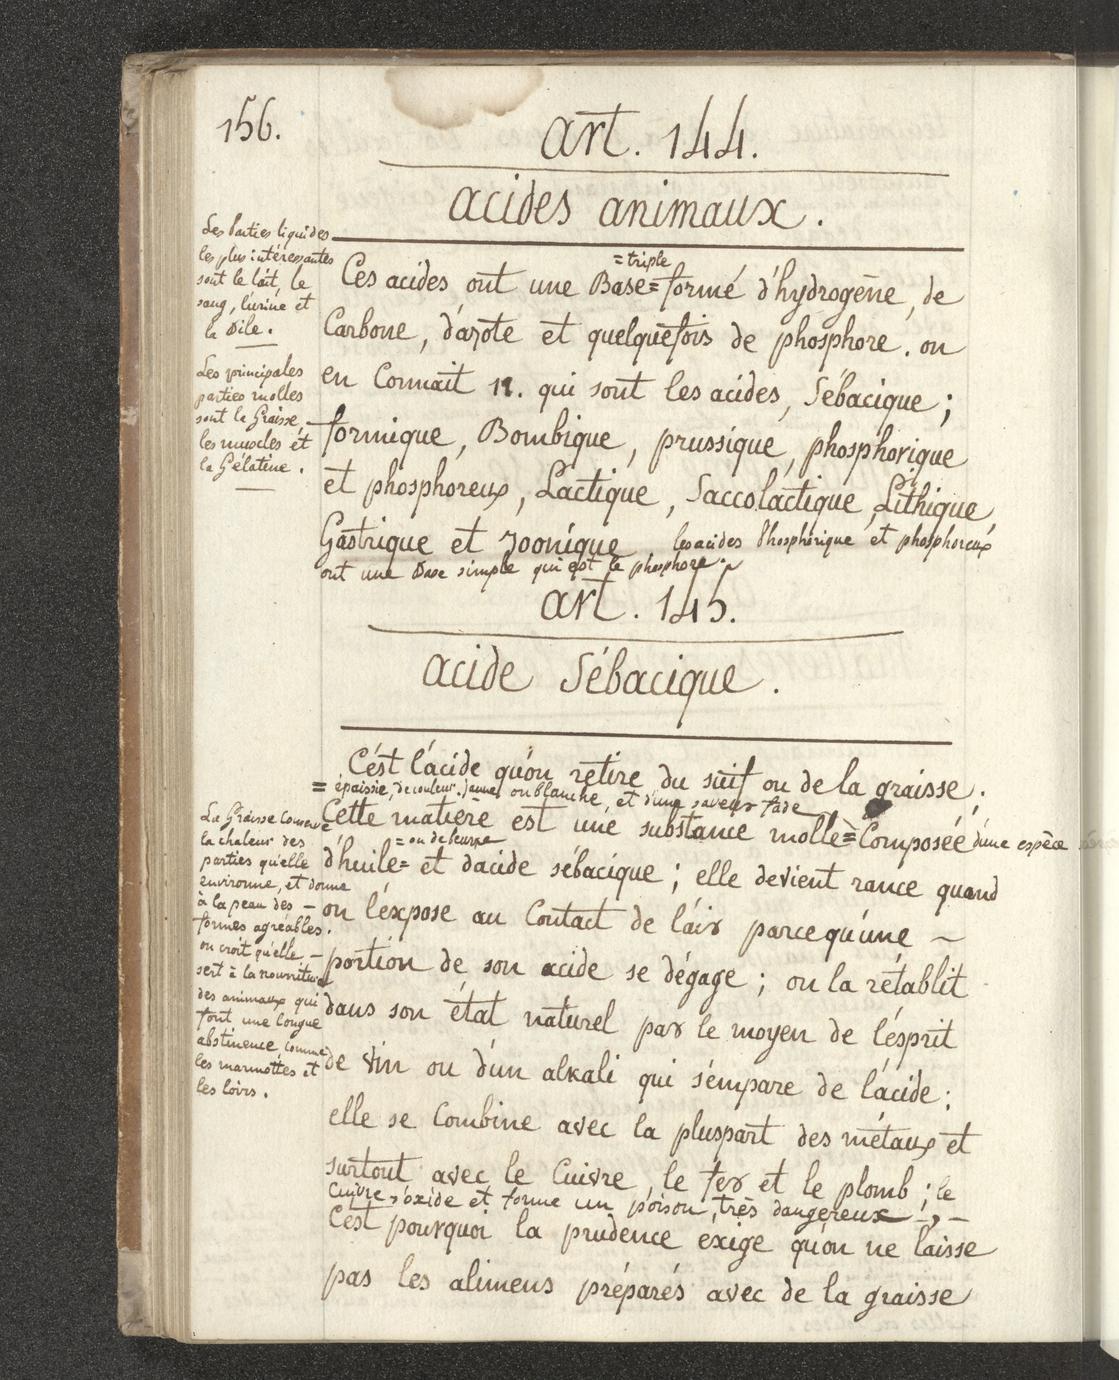 156.
art. 144.
acides animaux.
Les parties liquides
les plus intéressantes
sont le lait, le
sang, l'urine et
la Bile.
Les principales
parties molles
sont la Graisse,
les muscles et
la Gélatine.
=triple
Ces acides ont une Base= formé d'hydrogène, de
Carbone, d'azote et quelquefois de phosphore. on
en Connait 11. qui sont les acides, Sébacique;
formique, Bombique, prussique, phosphorique
et phosphoreux, Lactique, Saccolactique, Lithique
Gastrique et zoonique, les acides Phosphorique et phosphoreux
ont une Base simple qui est le phosphore.
art. 145.
acide Sébacique.
C'est l'acide qu'on retire du suif ou de la graisse;
= épaissie, de couleur jaune ou blanche, et d'une saveur fade
Cette matière est une substance molle= Composée d'une espèce
= ou de beurre
d'huile= et d'acide sébacique; elle devient rance quand
on l'expose au Contact de l'air parcequ'une ~
portion de son acide se dégage; on la rétablit
dans son état naturel par le moyen de l'ésprit
de vin ou d'un alkali qui s'empare de l'acide;
elle se Combine avec la pluspart des métaux et
surtout avec le Cuivre, le fer et le plomb; le
Cuivre s'oxide et forme un poison très dangereux; —
C'est pourquoi la prudence éxige qu'on ne laisse
pas les alimens préparés avec de la graisse
La Graisse Conserve
la chaleur des
parties qu'elle
environne, et donne
à la peau des —
formes agréables.
on croit qu'elle —
sert à la nourriture
des animaux qui
font une longue
abstinence comme
les marmottes et
les loirs.